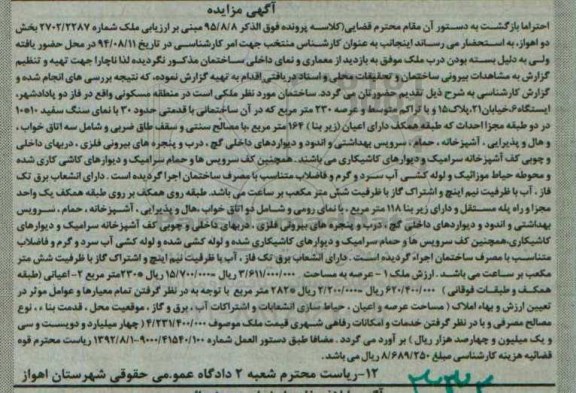 آگهی مزایده
احتراما بازگشت به دستور آن مقام محترم قضایی(کلاسه پرونده فوق الذکر ۹۵/۸/۸ مبنی بر ارزیابی ملک شماره ۲۷۰۲/۲۲۸۷ بخش
دو اهواز، به استحضار می رساند اینجانب به عنوان کارشناس منتخب جهت امر کارشناسی در تاریخ ۹۴/۰۸/۱۱ در محل حضور یافته
ولی به دلیل بسته بودن درب ملک موفق به بازدید از معماری و نمای داخلی ساختمان مذکور نگردیده لذا ناچارا جهت تهیه و تنظیم
گزارش به مشاهدات بیرونی ساختمان و تحقیقات محلی و اسناد دریافتی اقدام به تهیه گزارش نموده، که نتیجه بررسی های انجام شده و
گزارش کارشناسی به شرح ذیل تقدیم حضورتان می گردد. ساختمان مورد نظر ملکی است در منطقه مسکونی واقع در فاز دو پادادشهر،
ایستگاه۶،خیابان۲۱،پلاک۱۵ و با تراکم متوسط و عرصه ۲۳۰ متر مربع که در آن ساختمانی با قدمتی حدود ۳۰ با نمای سنگ سفید ۱۰*۱۰
در دو طبقه مجزا احداث که طبقه همکف دارای اعیان (زیر بنا) ۱۶۴ متر مربع ،با مصالح سنتی و سقف طاق ضربی و شامل سه اتاق خواب ،
و هال و پذیرایی ، آشپزخانه ، حمام ، سرویس بهداشتی و اندود و دیوارهای داخلی گچ ، درب و پنجره های بیرونی فلزی ، دربهای داخلی و
چوبی کف آشپزخانه سرامیک و دیوارهای کاشیکاری می باشند. همچنین کف سرویس ها و حمام سرامیک و دیوارهای کاشی کاری شده
و محوطه حیاط موزائیک و لوله کشی آب سرد و گرم و فاضلاب متناسب با مصرف ساختمان اجرا گردیده است . دارای انشعاب برق تک
فاز ، آب با ظرفیت نیم اینچ و اشتراک گاز با ظرفیت شش متر مکعب بر ساعت می باشد. طبقه روی همکف بر روی طبقه همکف یک واحد
مجزا و راه پله مستقل و دارای زیر بنا ۱۱۸ متر مربع ، با نمای رومی و شامل دو اتاق خواب ،هال و پذیرایی ، آشپزخانه ، حمام ، سرویس
بهداشتی و اندود و دیواردهای داخلی گچ ، درب و پنجره های بیرونی فلزی ، دربهای داخلی و چوبی کف آشپزخانه سرامیک و دیوارهای
کاشیکاری،همچنین کف سرویس ها و حمام سرامیک و دیوارهای کاشیکاری شده و لوله کشی شده و لوله کشی آب سرد و گرم و فاضلاب
متناسب با مصرف ساختمان اجراء گردیده است . دارای انشعاب برق تک فاز ، آب با ظرفیت نیم اینچ و اشتراک گاز با ظرفیت شش متر
مکعب بر ساعت می باشد . ارزش ملک ۱ - عرصه به مساحت ۳/۶۱۱/۰۰۰/۰۰۰ ریال ۱۵/۷۰۰/۰۰۰ ریال *۲۳۰متر مربع ۲- اعیانی (طبقه
همکف و طبقات فوقانی ) ۶۲۰/۴۰۰/۰۰۰ ریال ۲/۲۰۰/۰۰۰ ریال *۲۸۲ متر مربع با توجه به در نظر گرفتن تمام معیارها و عوامل موثر در
تعیین ارزش و بهاء املاک ( مساحت عرصه و اعیان ، حیاط سازی انشعابات و اشتراکات آب ، برق و گاز ، موقعیت محل ، قدمت بناء ، نوع
مصالح مصرفی و با در نظر گرفتن خدمات و امکانات رفاهی شهری قیمت ملک موصوف ۴/۲۳۱/۴۰۰/۰۰۰ (چهار میلیارد و دویست و سی
و یک میلیون و چهارصد هزار ریال ) بر آورد می گردد . مضافا طبق دستور العمل شماره ۹۰۰۰/۴۱۵۴۰/۱۰۰-۱۳۹۲/۸/۱ ریاست محترم قوه
قضائیه هزینه کارشناسی مبلغ ۸/۶۸۹/۲۵۰ ریال می باشد.
۱۲-ریاست محترم شعبه ۲ دادگاه عمومی حقوقی شهرستان اهواز